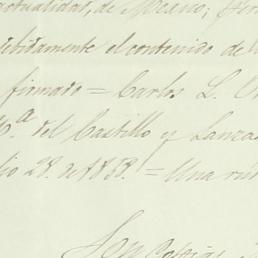 actualidad, de Mexico; fir
debidamente el contenido de
firmado = Carlos L.
M.ª del Castillo y Lanza
lio 28. de 1853. = Una
Son copias